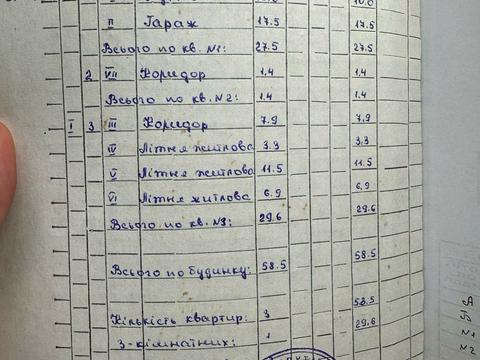 II Гараж 17.5 17.5
Всього по кв. N1: 27.5 27.5
2 VII Коридор 1.4 1.4
Всього по кв. N2: 1.4 1.4
I 3 III Коридор 7.9 7.9
IV Літня житлова 3.3 3.3
V Літня житлова 11.5 11.5
VI Літня житлова 6.9 6.9
Всього по кв. N3: 29.6 29.6
Всього по будинку: 58.5 58.5
58.5
Кількість квартир: 3 29.6
3-кімнатних: 1
А
N1
N2